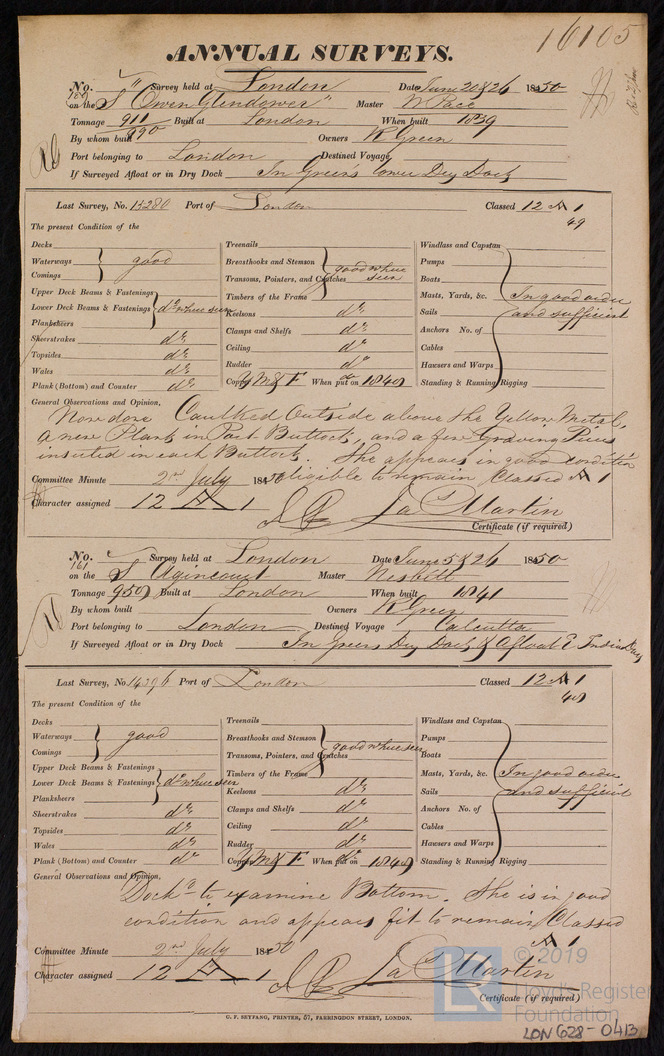 16105
ANNUAL SURVEYS.
No. 160 Survey held at London Date June 20 & 26 1850
on the S "Owen Glendower" Master W Pace
Tonnage 911 Built at London When built 1839
990
By whom built Owners R Green
Port belonging to London Destined Voyage
If Surveyed Afloat or in Dry Dock In Green's lower Dry Dock
Last Survey, No. 13280 Port of London Classed 12 A 1
49
The present Condition of the
Decks
Waterways good
Comings
Upper Deck Beams & Fastenings
Lower Deck Beams & Fastenings do where seen
Planksheers
Sheerstrakes do
Topsides do
Wales do
Plank (Bottom) and Counter do
Treenails
Breasthooks and Stemson good where seen
Transoms, Pointers, and Crutches
Timbers of the Frame
Keelsons do
Clamps and Shelfs do
Ceiling do
Rudder do
Copper YM & F When put on 1849
Windlass and Capstan
Pumps
Boats
Masts, Yards, &c. In good order
Sails and sufficient
Anchors No. of
Cables
Hawsers and Warps
Standing & Running Rigging
General Observations and Opinion,
Now done Caulked Outside above the Yellow Metal,
a new Plank in Port Buttock, and a few Graving Pieces
inserted in each Buttock. She appears in good condition
eligible to remain Classed A 1
Committee Minute 2nd July 1850
Character assigned 12 A 1
Ja Martin
Certificate (if required)
No. 161 Survey held at London Date June 5 & 26 1850
on the S Agincourt Master Nesbitt
Tonnage 950 Built at London When built 1841
By whom built Owners R Green
Port belonging to London Destined Voyage Calcutta
If Surveyed Afloat or in Dry Dock In Greens Dry Dock & Afloat E. India Docks
Last Survey, No. 14396 Port of London Classed 12 A 1
49
The present Condition of the
Decks
Waterways good
Comings
Upper Deck Beams & Fastenings
Lower Deck Beams & Fastenings do where seen
Planksheers
Sheerstrakes do
Topsides do
Wales do
Plank (Bottom) and Counter do
Treenails
Breasthooks and Stemson good where seen
Transoms, Pointers, and Crutches
Timbers of the Frame
Keelsons do
Clamps and Shelfs do
Ceiling do
Rudder do
Copper YM & F When put on 1849
Windlass and Capstan
Pumps
Boats
Masts, Yards, &c. In good order
Sails and sufficient
Anchors No. of
Cables
Hawsers and Warps
Standing & Running Rigging
General Observations and Opinion,
Dockd to examine Bottom. She is in good
condition and appears fit to remain Classed
A 1
Committee Minute 2nd July 1850
Character assigned 12 A 1
Ja Martin
Certificate (if required)
G. F. SEYFANG, PRINTER, 57, FARRINGDON STREET, LONDON.
LR © 2019
Lloyd's Register
Foundation
LON 628-0413